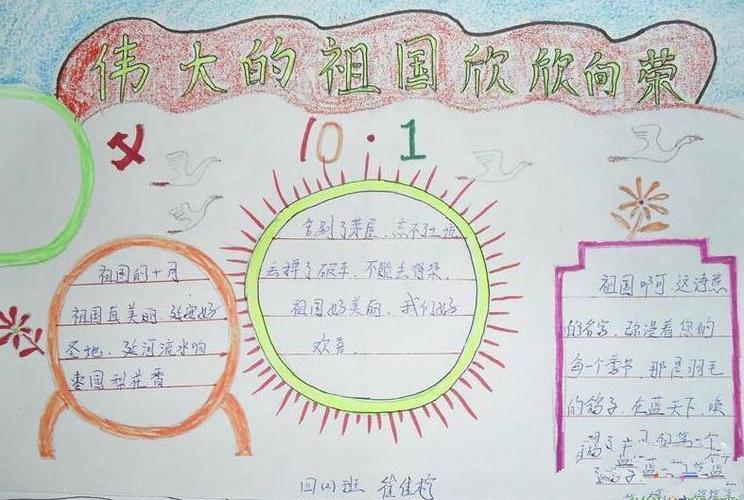 伟大的祖国欣欣向荣
10·1
祖国的十月
祖国真美丽 延安好
圣地 延河流水响
枣园梨花香
告别了茅屋 忘不了土坑
丢掉了破车 不能丢
祖国好美丽 我们好
欢喜
祖国啊 这诗意
的名字 弥漫着您的
每一个季节 那是羽毛
的鸽子 在蓝天下 唤
的第一个
四(2)班